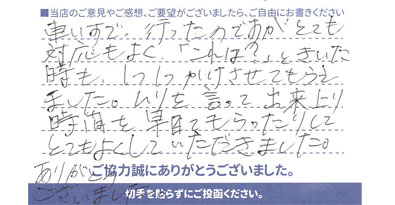 ■当店のご意見やご感想、ご要望がございましたら、ご自由にお書きください
車いすで 行ったのであが とても
対応もよく「これは?」ときいた
時も、しつ かけさせてもらえ
ました。ムリを言って出来上り
時間を早目てもらったりして
とてもよくしていただきました。
ありがとう
ございました
ご協力誠にありがとうございました。
切手を貼らずにご投函ください。